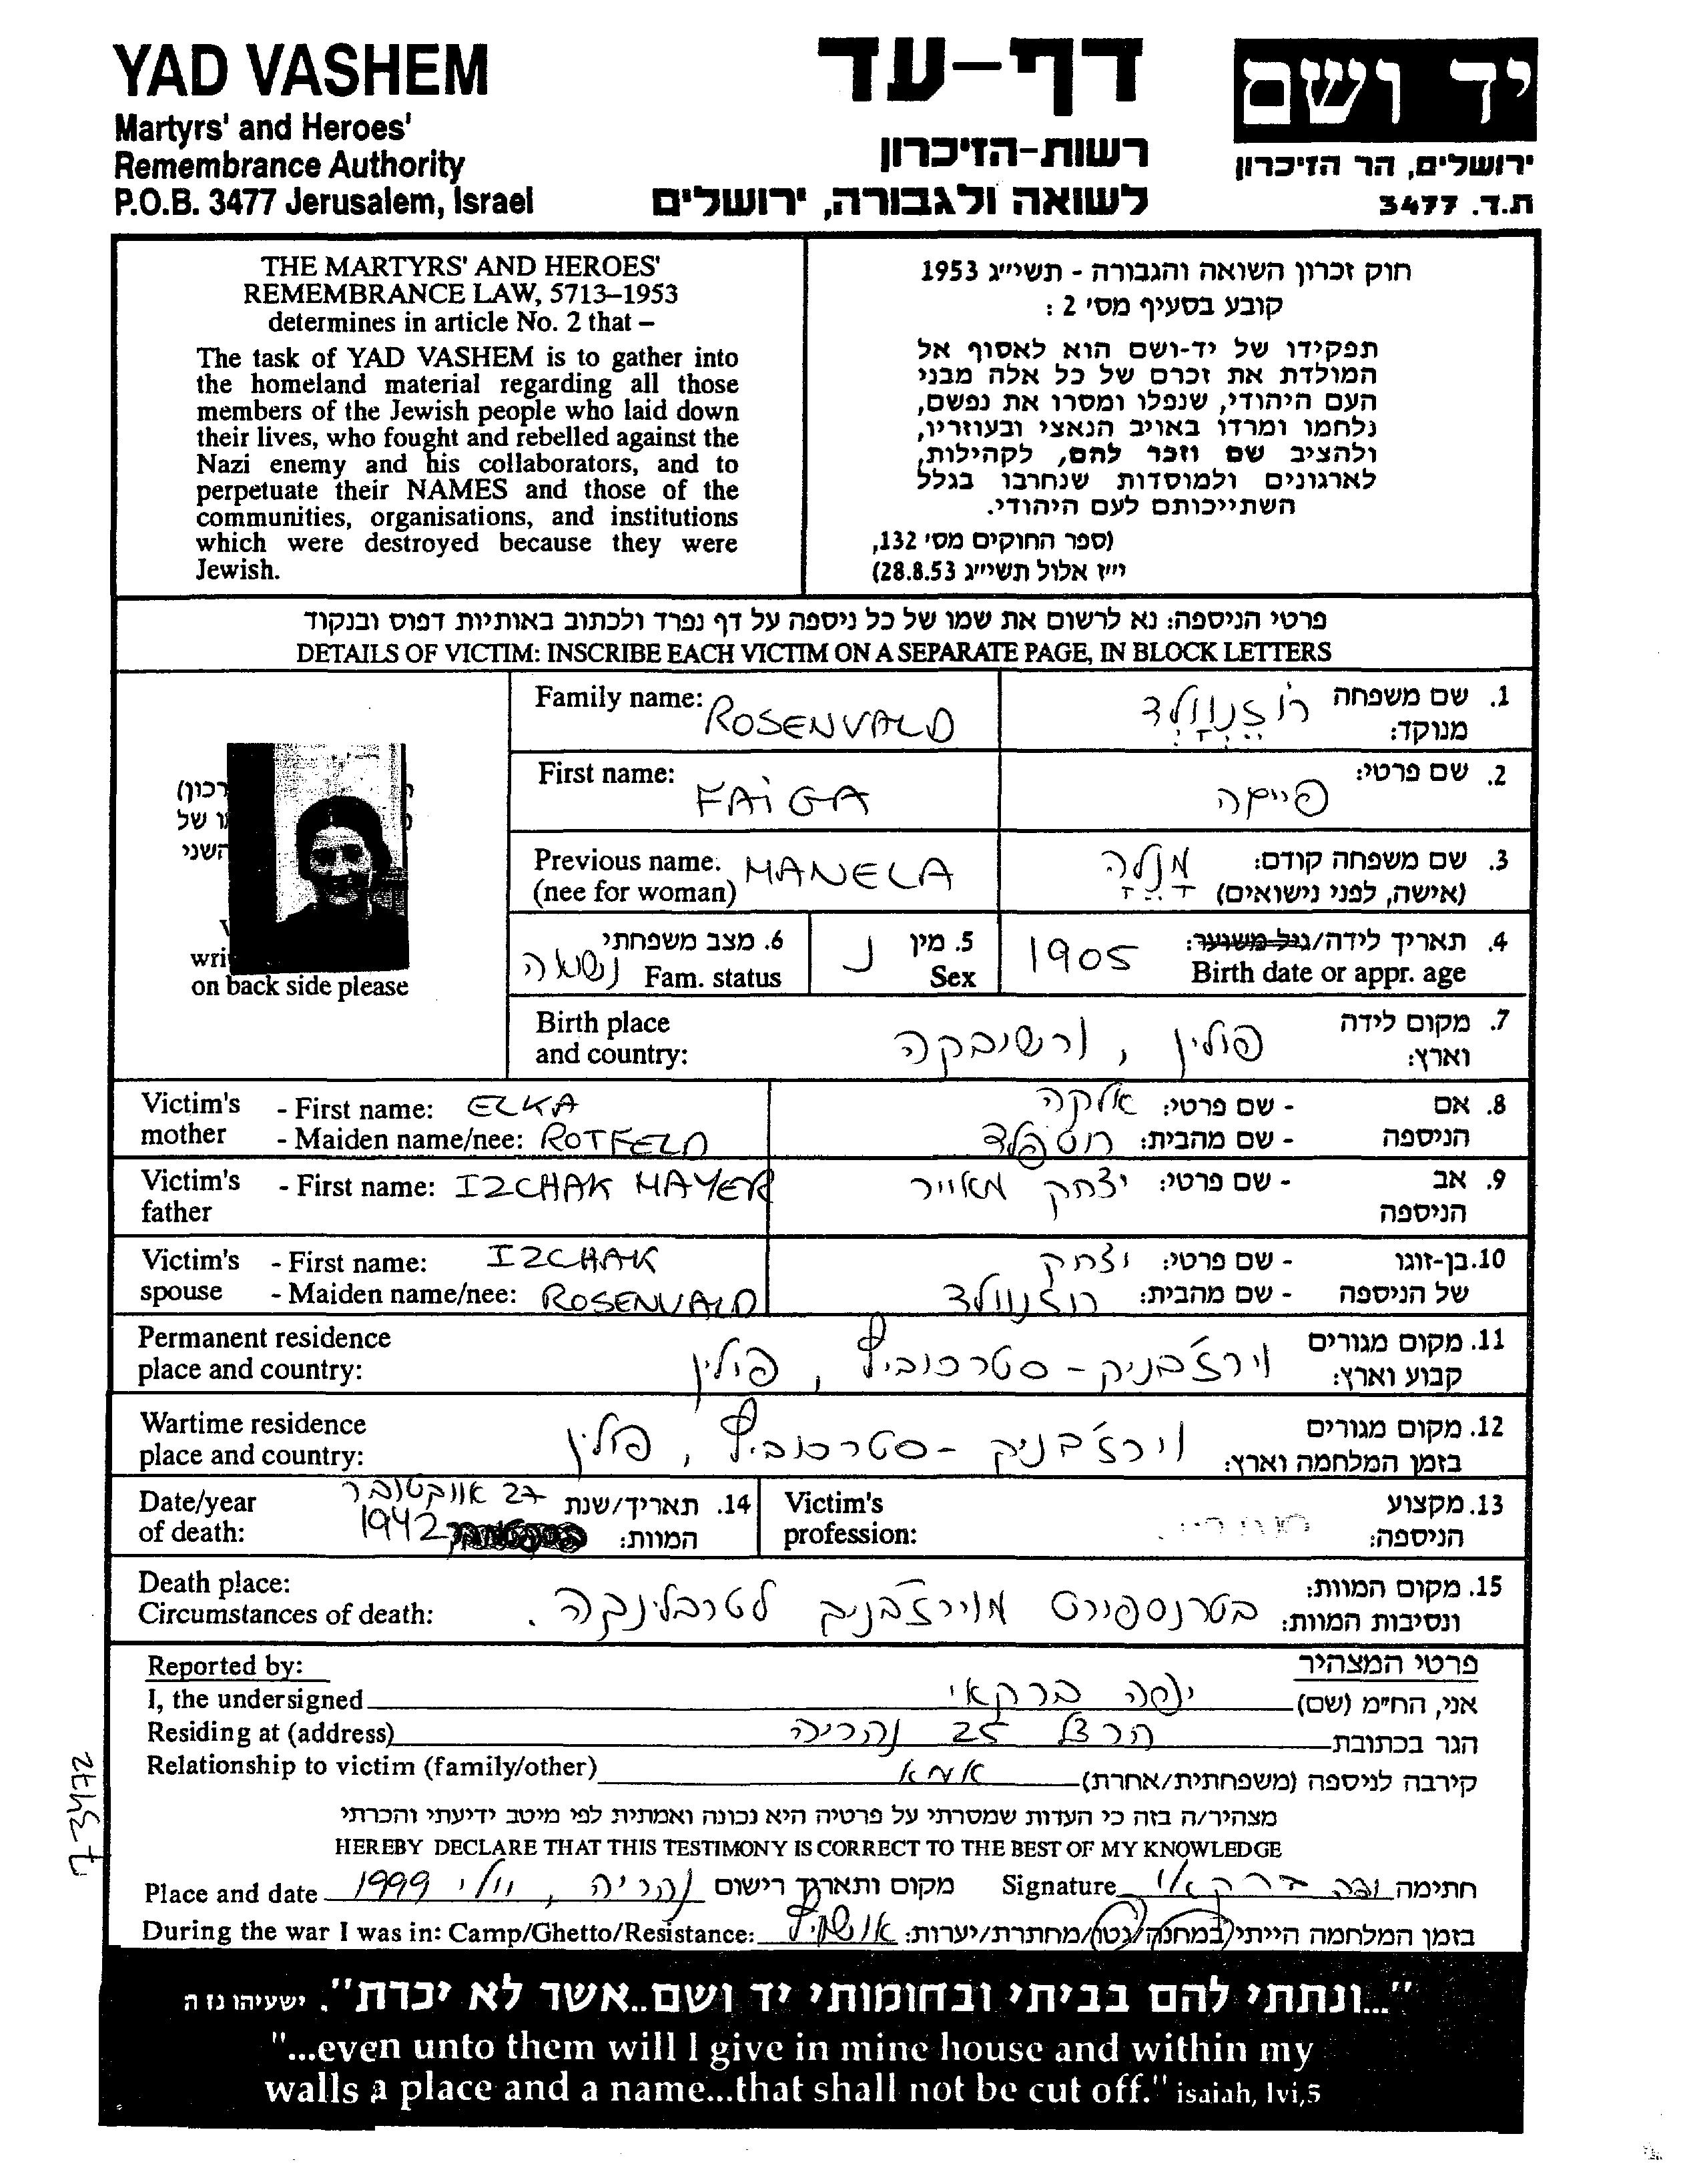 YAD VASHEM
Martyrs' and Heroes'
Remembrance Authority
P.O.B. 3477 Jerusalem, Israel
דף-עד
רשות-הזיכרון
לשואה ולגבורה, ירושלים
יד ושם
ירושלים, הר הזיכרון
ת.ד. 3477
THE MARTYRS' AND HEROES'
REMEMBRANCE LAW, 5713–1953
determines in article No. 2 that –
The task of YAD VASHEM is to gather into
the homeland material regarding all those
members of the Jewish people who laid down
their lives, who fought and rebelled against the
Nazi enemy and his collaborators, and to
perpetuate their NAMES and those of the
communities, organisations, and institutions
which were destroyed because they were
Jewish.
חוק זכרון השואה והגבורה - תשי״ג 1953
קובע בסעיף מס׳ 2 :
תפקידו של יד-ושם הוא לאסוף אל
המולדת את זכרם של כל אלה מבני
העם היהודי, שנפלו ומסרו את נפשם,
נלחמו ומרדו באויב הנאצי ובעוזריו,
ולהציב שם וזכר להם, לקהילות,
לארגונים ולמוסדות שנחרבו בגלל
השתייכותם לעם היהודי.
(ספר החוקים מס׳ 132,
י״ז אלול תשי״ג 28.8.53)
פרטי הניספה: נא לרשום את שמו של כל ניספה על דף נפרד ולכתוב באותיות דפוס ובנקוד
DETAILS OF VICTIM: INSCRIBE EACH VICTIM ON A SEPARATE PAGE, IN BLOCK LETTERS
רכון)
ו של
השני
wri
on back side please
Family name: ROSENVALD
1. שם משפחה מנוקד: רוזנוולד
First name: FAIGA
2. שם פרטי: פייגה
Previous name. MANELA
(nee for woman)
3. שם משפחה קודם: מנלה
(אישה, לפני נישואים)
6. מצב משפחתי נשואה
Fam. status
5. מין נ
Sex
4. תאריך לידה/גיל משוער: 1905
Birth date or appr. age
Birth place
and country:
7. מקום לידה
וארץ: פולין, ורשובקה
Victim's mother - First name: ELKA
- Maiden name/nee: ROTFELD
8. אם הניספה - שם פרטי: אלקה
- שם מהבית: רוטפלד
Victim's father - First name: IZCHAK MAYER
9. אב הניספה - שם פרטי: יצחק מאייר
Victim's spouse - First name: IZCHAK
- Maiden name/nee: ROSENVALD
10. בן-זוגו של הניספה - שם פרטי: יצחק
- שם מהבית: רוזנוולד
Permanent residence
place and country:
11. מקום מגורים
קבוע וארץ: וירז'בניק - סטרכוביץ, פולין
Wartime residence
place and country:
12. מקום מגורים
בזמן המלחמה וארץ: וירז'בניק - סטרכוביץ, פולין
Date/year
of death:
14. תאריך/שנת המוות: 27 אוקטובר
1942
Victim's
profession:
13. מקצוע
הניספה:
Death place:
Circumstances of death:
15. מקום המוות:
ונסיבות המוות: בטרנספורט מוירז'בניק לטרבלינקה.
Reported by:
פרטי המצהיר
I, the undersigned
אני, הח״מ (שם) יפה ברקאי
Residing at (address)
הגר בכתובת הרצל 25 נהריה
Relationship to victim (family/other)
קירבה לניספה (משפחתית/אחרת) אמא
מצהיר/ה בזה כי העדות שמסרתי על פרטיה היא נכונה ואמתית לפי מיטב ידיעתי והכרתי
HEREBY DECLARE THAT THIS TESTIMONY IS CORRECT TO THE BEST OF MY KNOWLEDGE
Place and date מקום ותאריך רישום נהריה, יולי 1999
Signature חתימה יפה ברקאי
During the war I was in: Camp/Ghetto/Resistance:
בזמן המלחמה הייתי במחנה/גטו/מחתרת/יערות: אושוויץ
73472
"...ונתתי להם בביתי ובחומותי יד ושם..אשר לא יכרת". ישעיהו נו ה
"...even unto them will I give in mine house and within my
walls a place and a name...that shall not be cut off." isaiah, lvi,5